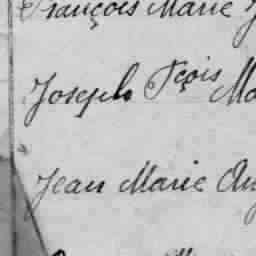 François Marie
Joseph Fçois Ma
Jean Marie Au